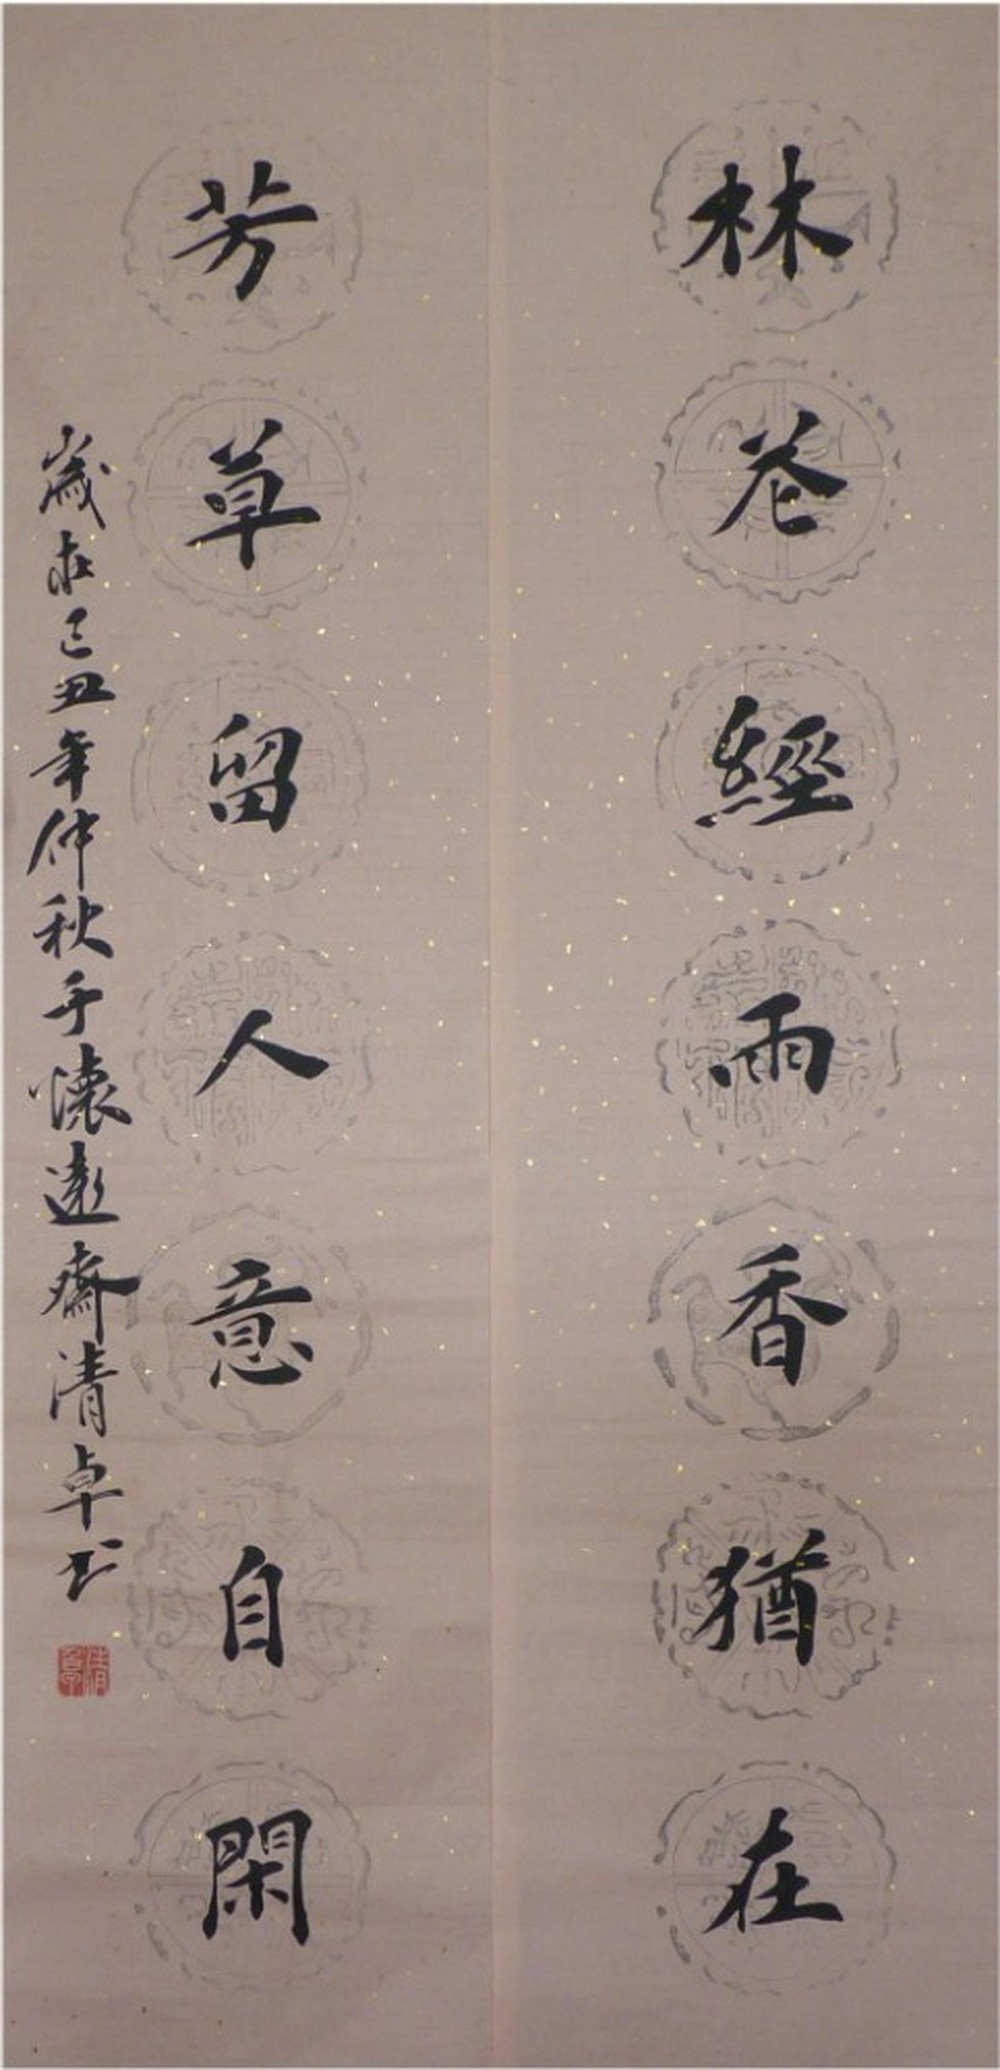 林花經雨香猶在
芳草留人意自閑
歲在己丑年仲秋于懷遠齋清卓书